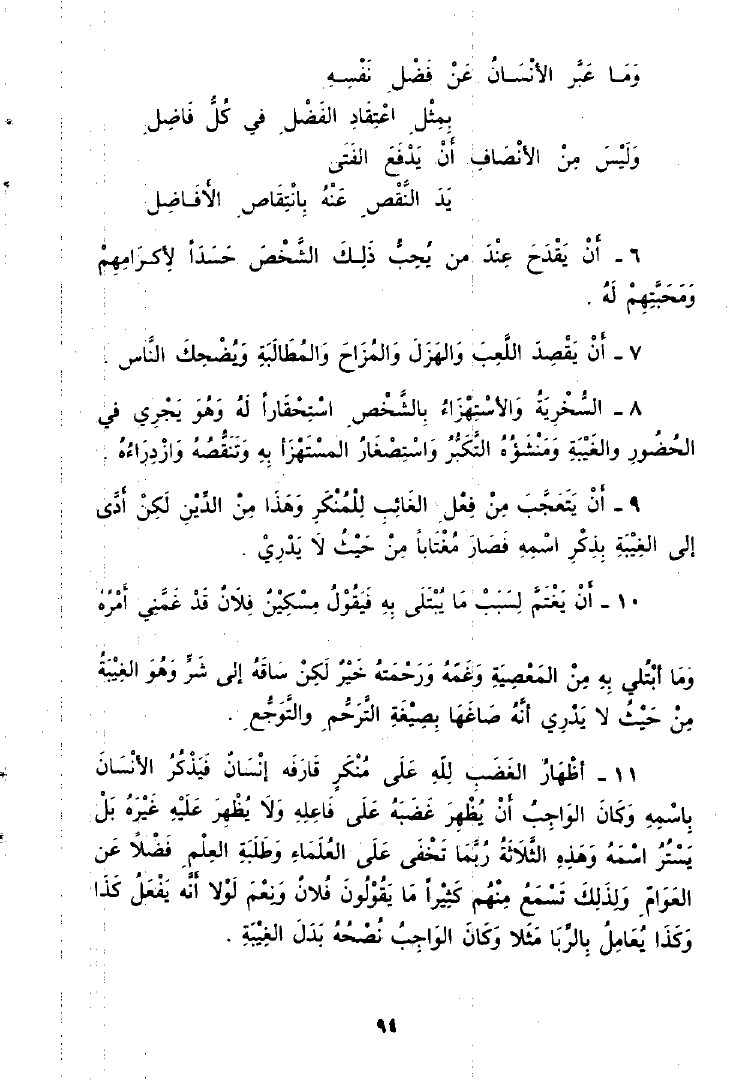 وَمَا عَبَّر الأنْسَانُ عَنْ فَضْلِ نَفْسِهِ
بِمِثْلِ اعْتِقَادِ الفَضْلِ في كُلُّ فَاضِلِ
وَلَيْسَ مِنْ الأنْصَافِ أنْ يَدْفَعَ الفَتَى
يَدَ النَّقْصِ عَنْهُ بِانْتِقَاصِ الأفَاضِلِ
٦ ـ أَنْ يَقْدَحَ عِنْدَ من يُحِبُّ ذَلِكَ الشَّخْصَ حَسَدَاً لأِكرَامِهِمْ
وَمَحَبَّتِهِمْ لَهُ .
٧ ـ أَنْ يَقْصِدَ اللَّعِبَ وَالهَزَلَ وَالمُزَاحَ وَالمُطَالَبَةِ وَيُضْحِكَ النَّاس .
٨ ـ السُّخْرِيَةُ وَالأسْتِهْزَاءُ بِالشَّخْصِ اسْتِحْقَاراً لَهُ وَهُوَ يَجْرِي في
الحُضُورِ والغَيْبَةِ وَمَنْشَؤُهُ التَّكَبُّرُ وَاسْتِصْغَارُ المسْتَهْزَأ بِهِ وَتَنَقُّصُهُ وَازْدِرَاءُهُ .
٩ ـ أَنْ يَتَعَجَّبَ مِنْ فِعْلِ الغَائِبِ لِلْمُنْكَرِ وَهَذَا مِنْ الدِّيْنِ لَكِنْ أَدَّى
إلى الغِيْبَةِ بِذِكْرِ اسْمِهِ فَصَارَ مُغْتَاباً مِنْ حَيْثُ لَا يَدْرِيْ .
١٠ ـ أَنْ يَغْتَمَّ لِسَبَبْ مَا يُبْتَلَى بِهِ فَيَقُوْلُ مِسْكِيْنٌ فِلَانٌ قَدْ غَمَّنِي أَمْرُهُ
وَمَا أبْتُلي بِهِ مِنْ المَعْصِيَةِ وَغَمّهُ وَرَحْمَتهُ خَيْرٌ لَكِنْ سَاقَهُ إلى شَرٍّ وَهُوَ الغِيْبَةُ
مِنْ حَيْثُ لا يَدْرِي أنَّهُ صَاغَهَا بِصِيْغَةِ التَّرَحُّمِ والتَّوَجُّعِ .
١١ ـ أظْهَارُ الغَضَبِ لِلهِ عَلَى مُنْكَرٍ قَارَفَه إنْسَانٌ فَيَذْكُرُ الأنْسَانَ
بِاسْمِهِ وَكَانَ الوَاجِبُ أَنْ يُظْهِرَ غَضَبَهُ عَلَى فَاعِلِهِ وَلَا يُظْهِرَ عَلَيْهِ غَيْرَهُ بَلْ
يَسْتُرُ اسْمَهُ وَهَذِهِ الثَّلاثَةُ رُبَّمَا تَخْفَى عَلَى العُلَمَاءِ وَطَلَبَةِ العِلْمِ فَضْلاً عَن
العَوَامِّ وَلِذَلِكَ تَسْمَعُ مِنْهُم كَثِيْراً مَا يَقُوْلُونَ فُلانٌ وَنِعْمَ لَوْلا أَنَّه يَفْعَلُ كَذَا
وَكَذَا يُعَامِلُ بِالرِّبَا مَثَلا وَكَانَ الوَاجِبُ نُصْحُهُ بَدَلَ الغِيْبَةِ .
٩٤